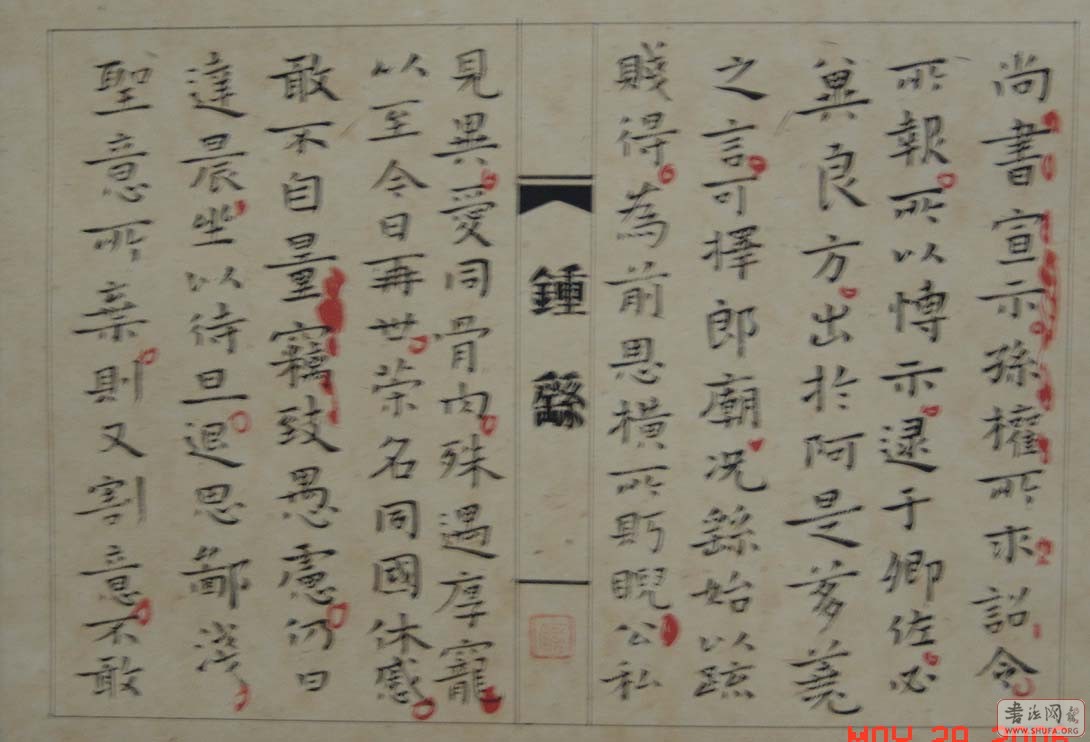 尚書宣示孫權所求詔令
所報所以博示逮于卿佐必
冀良方出於阿是芻蕘
之言可擇郎廟況繇始以疏
賤得為前恩橫所眄睨公私
鍾繇
見異愛同骨肉殊遇厚寵
以至今日再世榮名同國休慼
敢不自量竊致愚慮仍日
達晨坐以待旦退思鄙淺
聖意所棄則又割意不敢
书法网
WWW.SHUFA.ORG